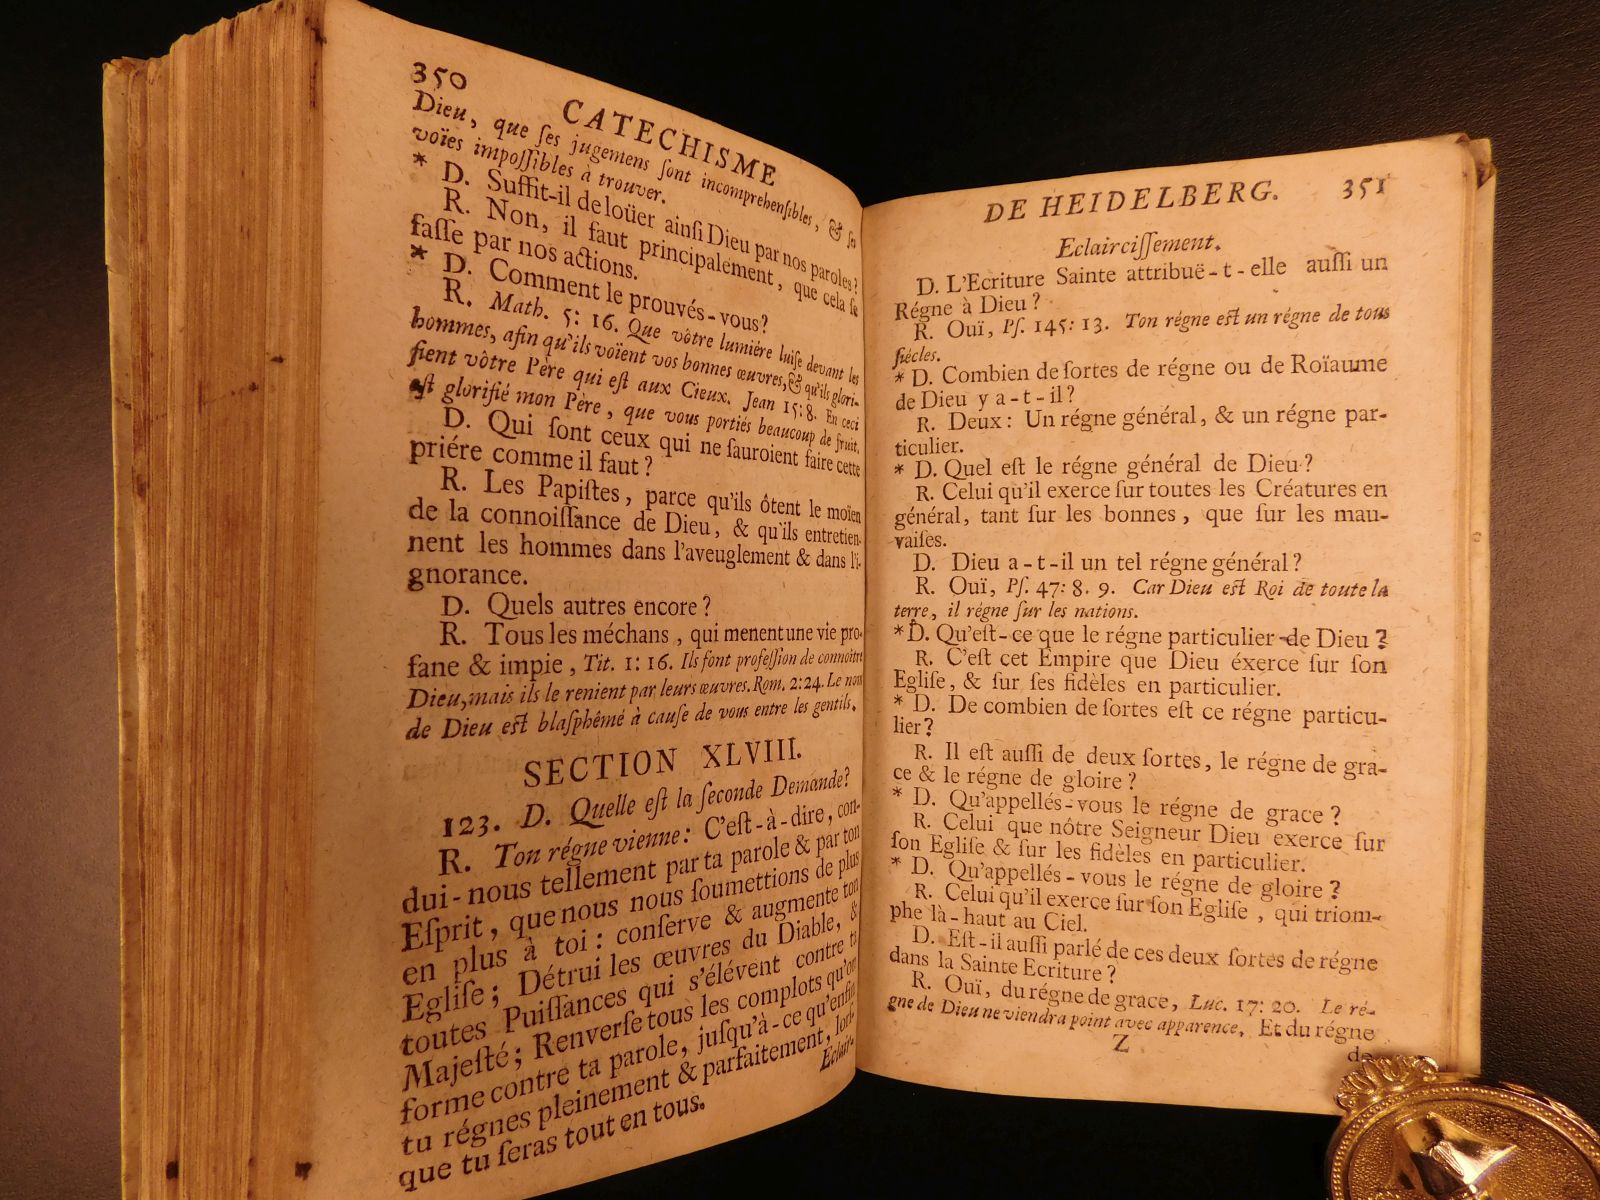 350
CATECHISME
Dieu, que ſes jugemens ſont incomprehenſibles, & ſes
voïes impoſſibles à trouver.
* D. Suffit-il de loüer ainſi Dieu par nos paroles?
R. Non, il faut principalement, que cela ſe
faſſe par nos actions.
* D. Comment le prouvés-vous?
R. Math. 5: 16. Que vôtre lumiére luiſe devant les
hommes, afin qu'ils voïent vos bonnes œuvres, & qu'ils glori-
fient vôtre Père qui eſt aux Cieux. Jean 15: 8. En ceci
eſt glorifié mon Père, que vous portiés beaucoup de fruit.
D. Qui ſont ceux qui ne ſauroient faire cette
priére comme il faut?
R. Les Papiſtes, parce qu'ils ôtent le moïen
de la connoiſſance de Dieu, & qu'ils entretien-
nent les hommes dans l'aveuglement & dans l'i-
gnorance.
D. Quels autres encore?
R. Tous les méchans, qui menent une vie pro-
fane & impie, Tit. 1: 16. Ils font profeſſion de connoître
Dieu, mais ils le renient par leurs œuvres. Rom. 2: 24. Le nom
de Dieu eſt blaſphêmé à cauſe de vous entre les gentils.
SECTION XLVIII.
123. D. Quelle eſt la ſeconde Demande?
R. Ton régne vienne: C'eſt-à-dire, con-
dui-nous tellement par ta parole & par ton
Eſprit, que nous nous ſoumettions de plus
en plus à toi: conſerve & augmente ton
Egliſe; Détrui les œuvres du Diable, &
toutes Puiſſances qui s'élévent contre ta
Majeſté; Renverſe tous les complots qu'on
forme contre ta parole, juſqu'à-ce qu'enfin
tu régnes pleinement & parfaitement, lorſ-
que tu ſeras tout en tous.
Eclair-
DE HEIDELBERG. 351
Eclairciſſement.
D. L'Ecriture Sainte attribuë-t-elle auſſi un
Régne à Dieu?
R. Ouï, Pſ. 145: 13. Ton régne eſt un régne de tous
ſiécles.
* D. Combien de ſortes de régne ou de Roïaume
de Dieu y a-t-il?
R. Deux: Un régne général, & un régne par-
ticulier.
* D. Quel eſt le régne général de Dieu?
R. Celui qu'il exerce ſur toutes les Créatures en
général, tant ſur les bonnes, que ſur les mau-
vaiſes.
D. Dieu a-t-il un tel régne général?
R. Ouï, Pſ. 47: 8. 9. Car Dieu eſt Roi de toute la
terre, il régne ſur les nations.
* D. Qu'eſt-ce que le régne particulier de Dieu?
R. C'eſt cet Empire que Dieu éxerce ſur ſon
Egliſe, & ſur ſes fidèles en particulier.
* D. De combien de ſortes eſt ce régne particu-
lier?
R. Il eſt auſſi de deux ſortes, le régne de gra-
ce & le régne de gloire?
* D. Qu'appellés-vous le régne de grace?
R. Celui que nôtre Seigneur Dieu exerce ſur
ſon Egliſe & ſur les fidèles en particulier.
* D. Qu'appellés-vous le régne de gloire?
R. Celui qu'il exerce ſur ſon Egliſe, qui triom-
phe là-haut au Ciel.
D. Eſt-il auſſi parlé de ces deux ſortes de régne
dans la Sainte Ecriture?
R. Ouï, du régne de grace, Luc. 17: 20. Le ré-
gne de Dieu ne viendra point avec apparence. Et du régne
Z
de